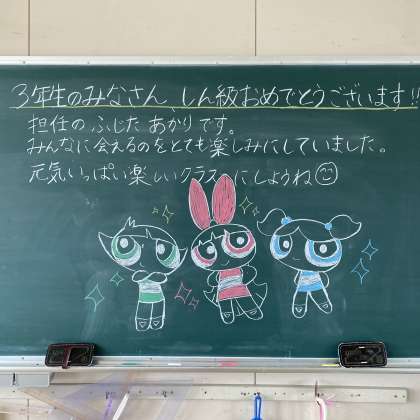 3年生のみなさん、しん級おめでとうございます!!
担任のふじた あかりです。
みんなに会えるのをとても楽しみにしていました。
元気いっぱい楽しいクラスにしようね